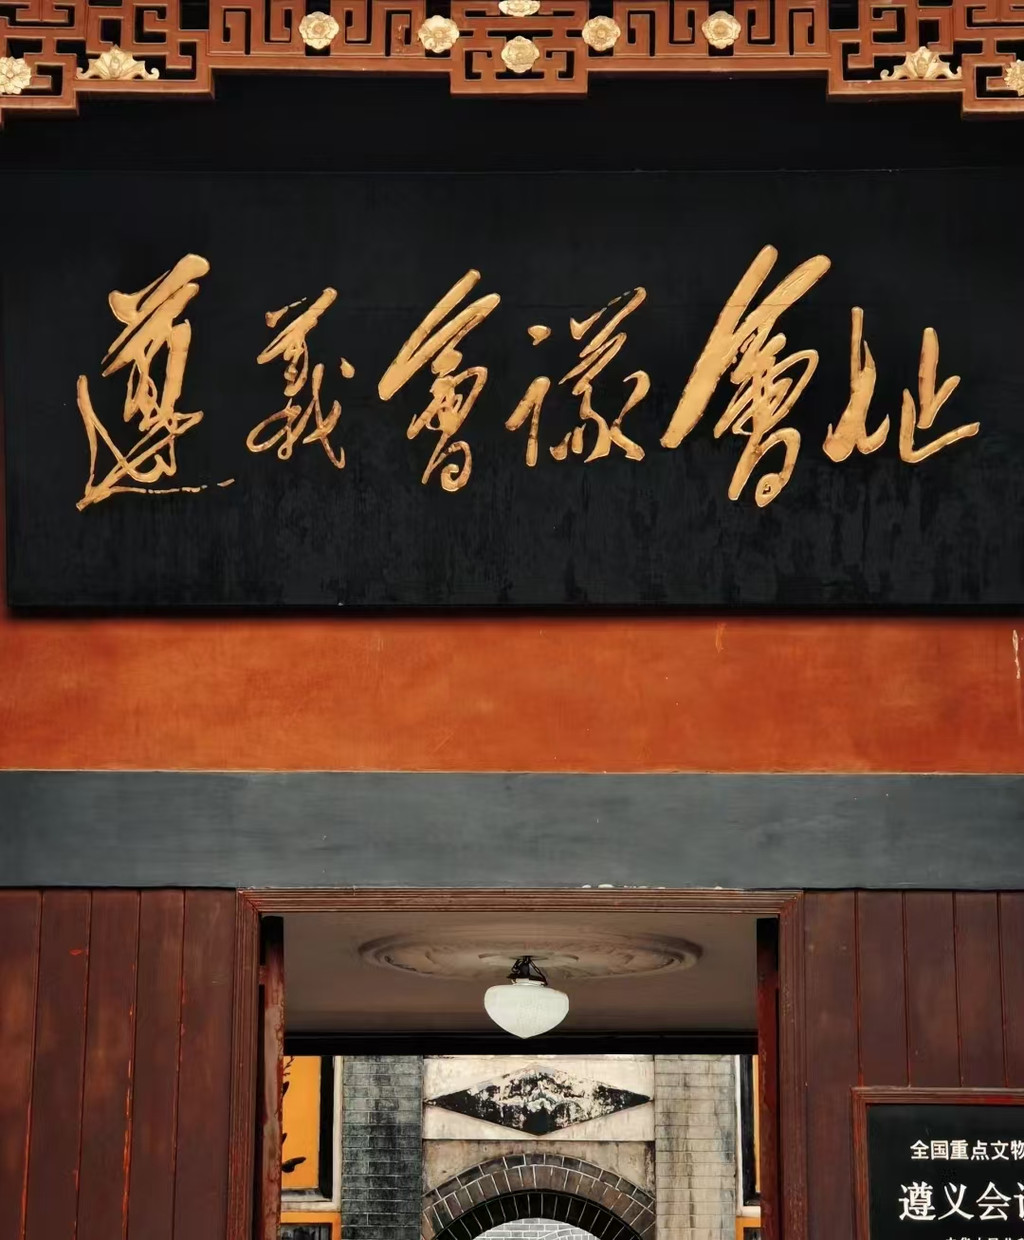 遵義會議會址
全国重点文物
遵义会